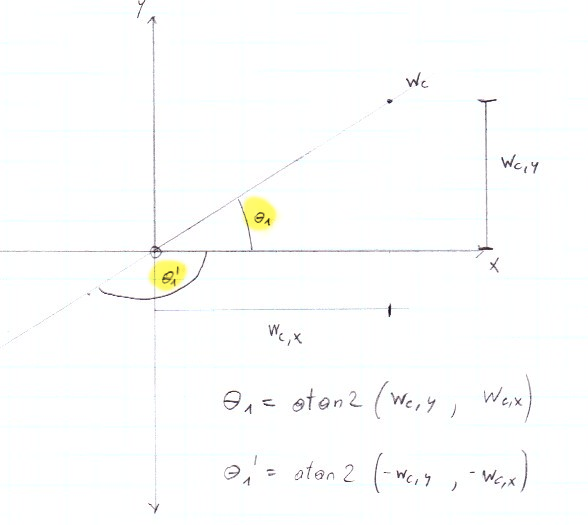 y
Wc
Wc,y
θ1
x
θ1'
Wc,x
θ1 = atan2 (Wc,y , Wc,x)
θ1' = atan2 (-Wc,y , -Wc,x)